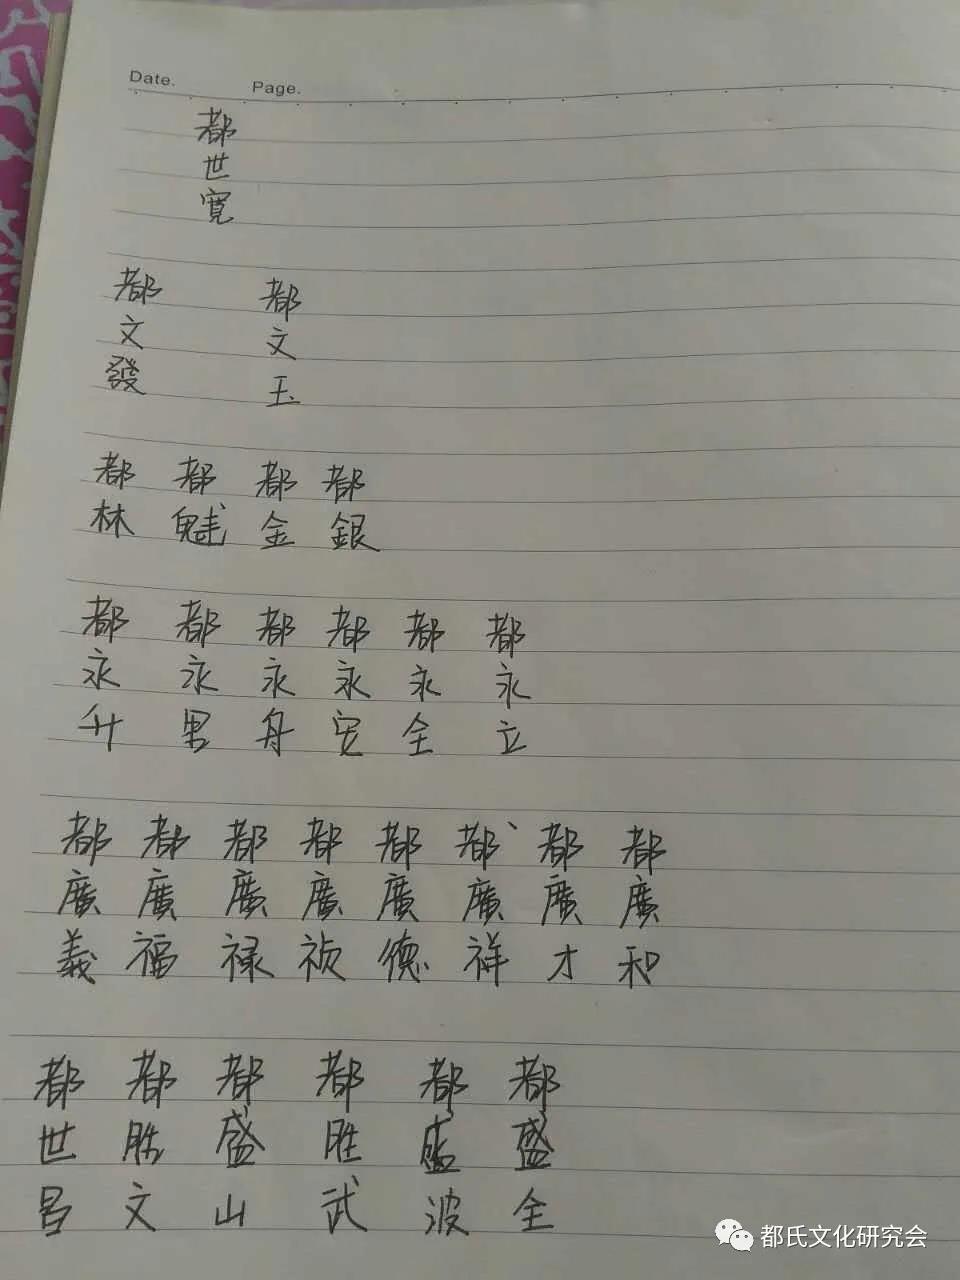 Date. Page.
都世寬
都文發
都文玉
都林
都魁
都金
都銀
都永升
都永男
都永舟
都永宽
都永全
都永立
都廣義
都廣福
都廣禄
都廣祯
都廣德
都廣祥
都廣才
都廣和
都世昌
都胜文
都盛山
都胜武
都盛波
都盛全
都氏文化研究会